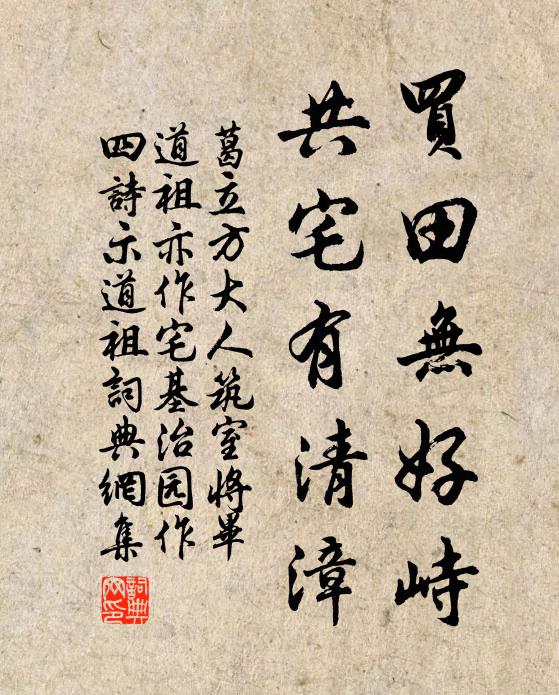 買田無好峙
共宅有清漳
葛立方大人筑室將畢
道祖亦作宅基治园作
四詩示道祖詞典網集
詞典
网印